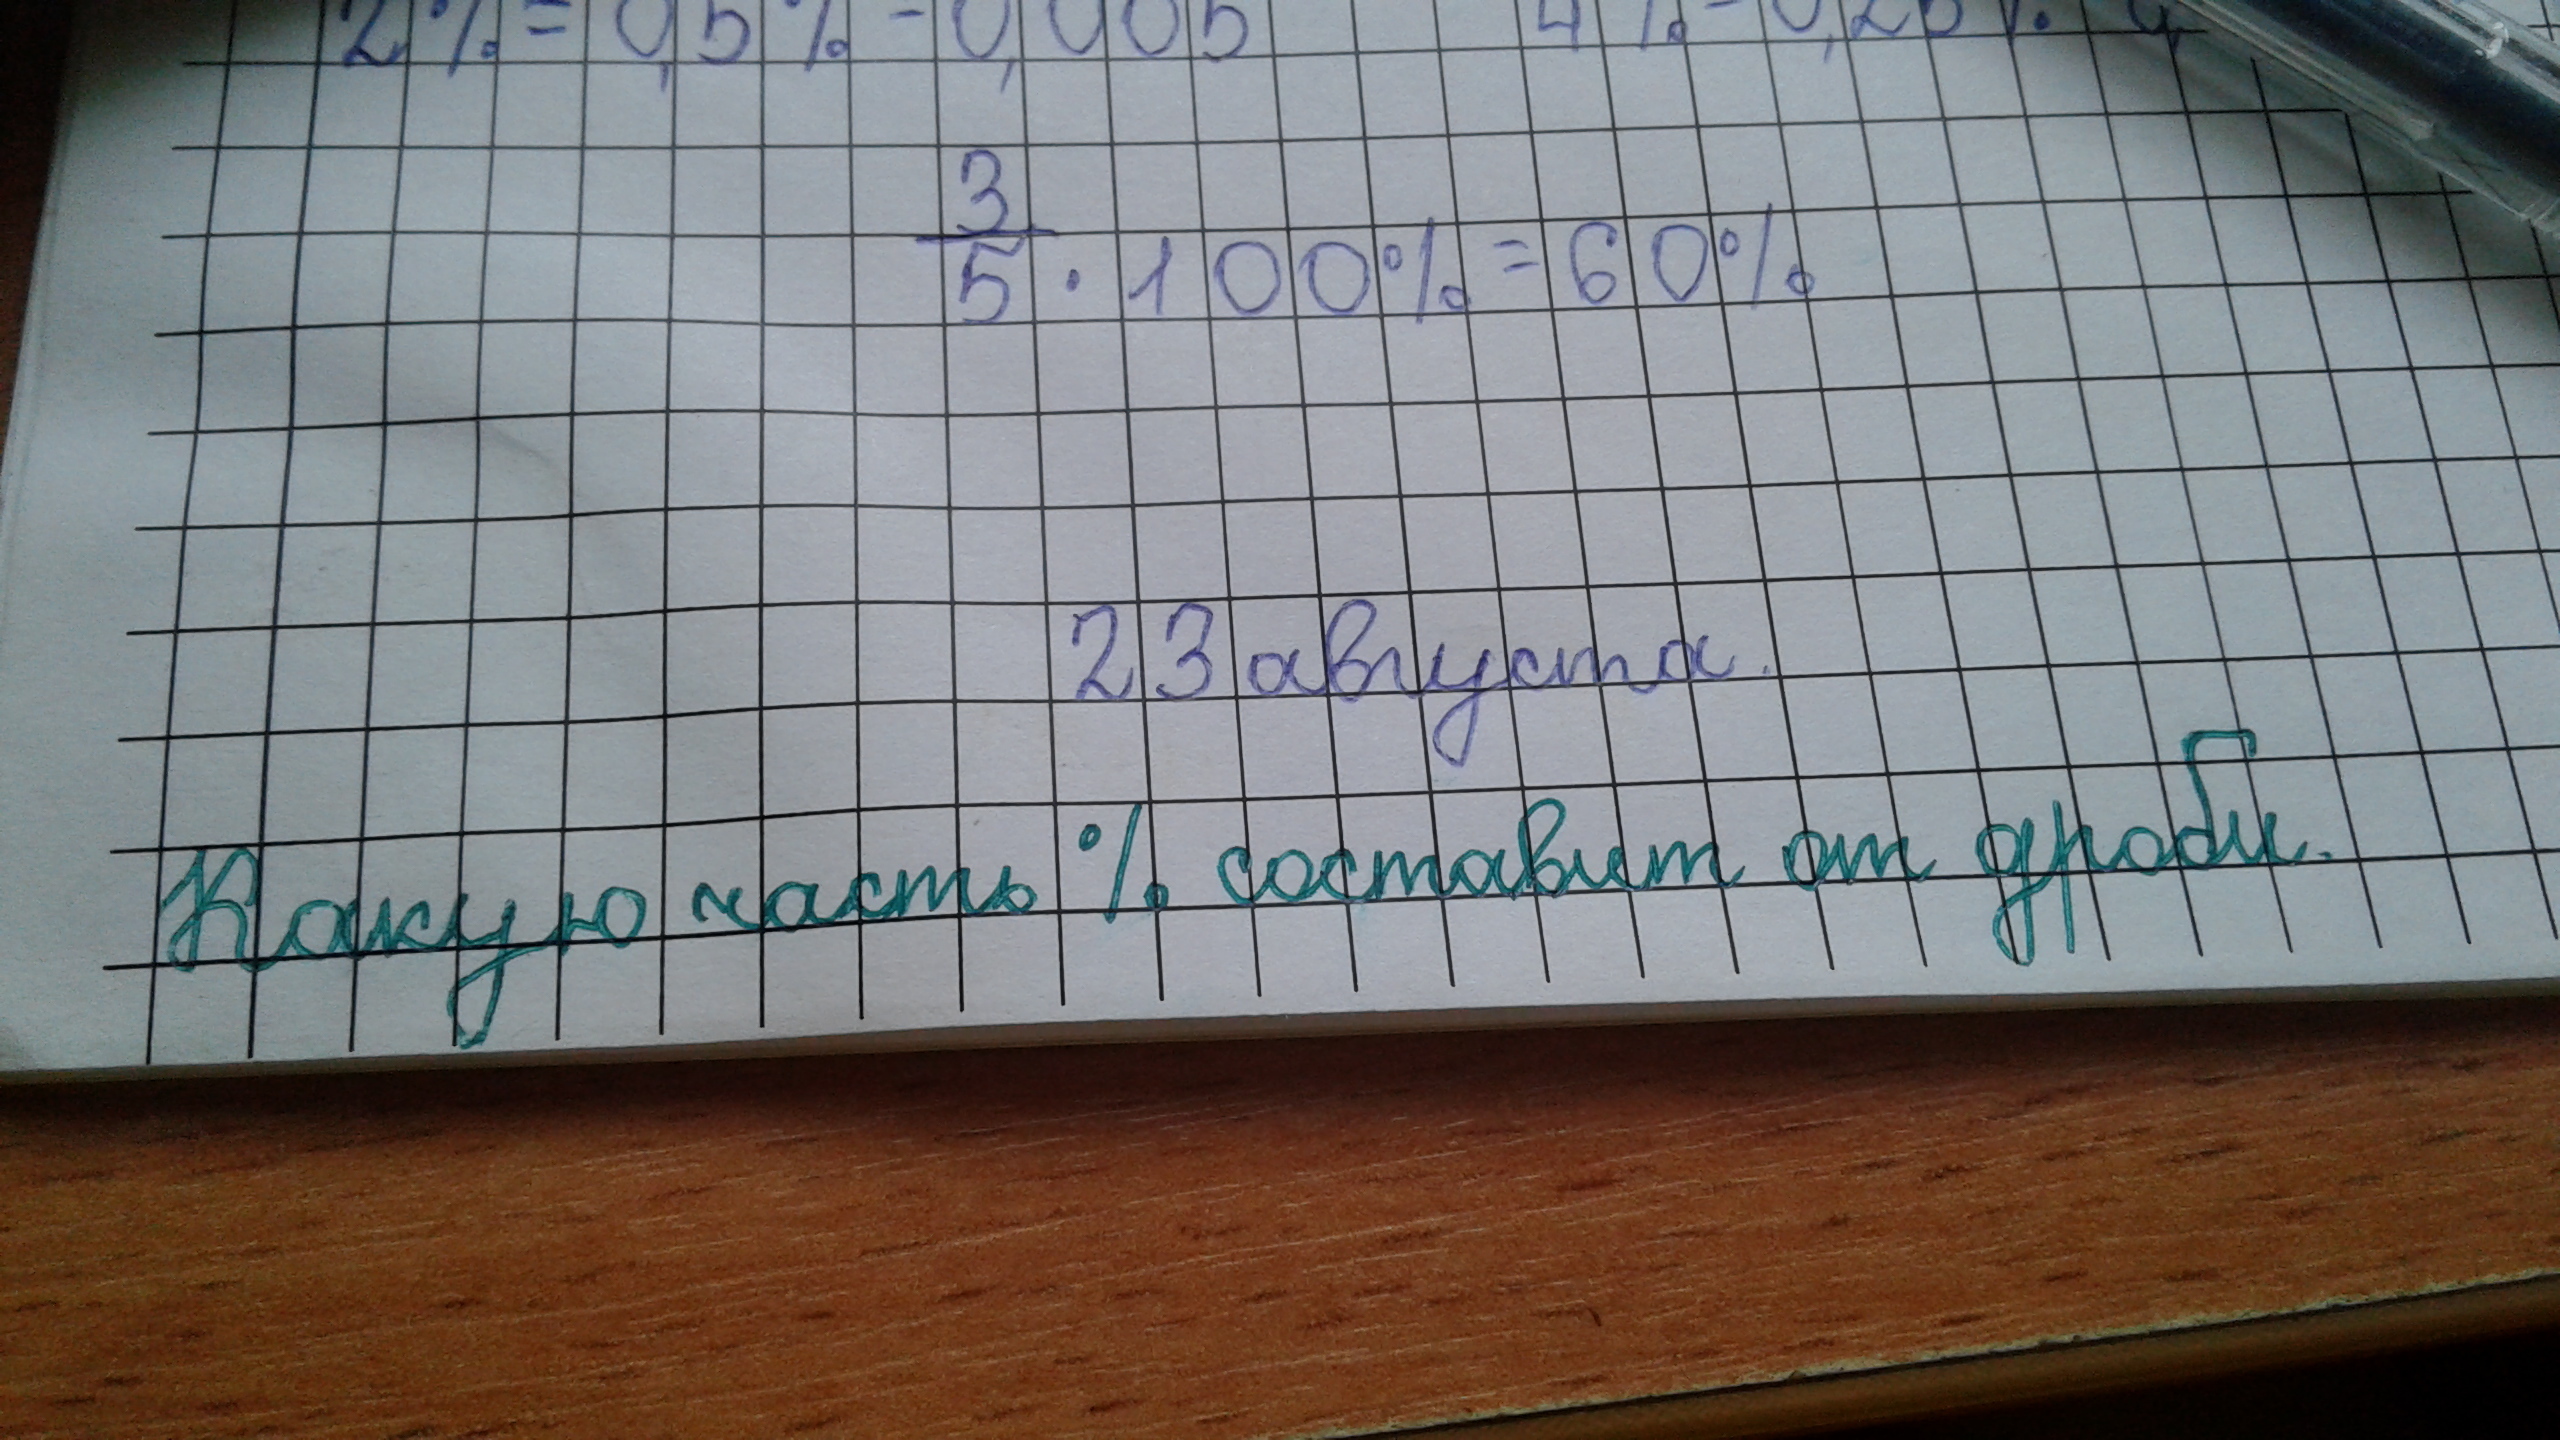 2% = 0,5% - 0,005 4% - 0,25%
3/5 · 100% = 60%
23 августа.
Какую часть % составит от дроби.